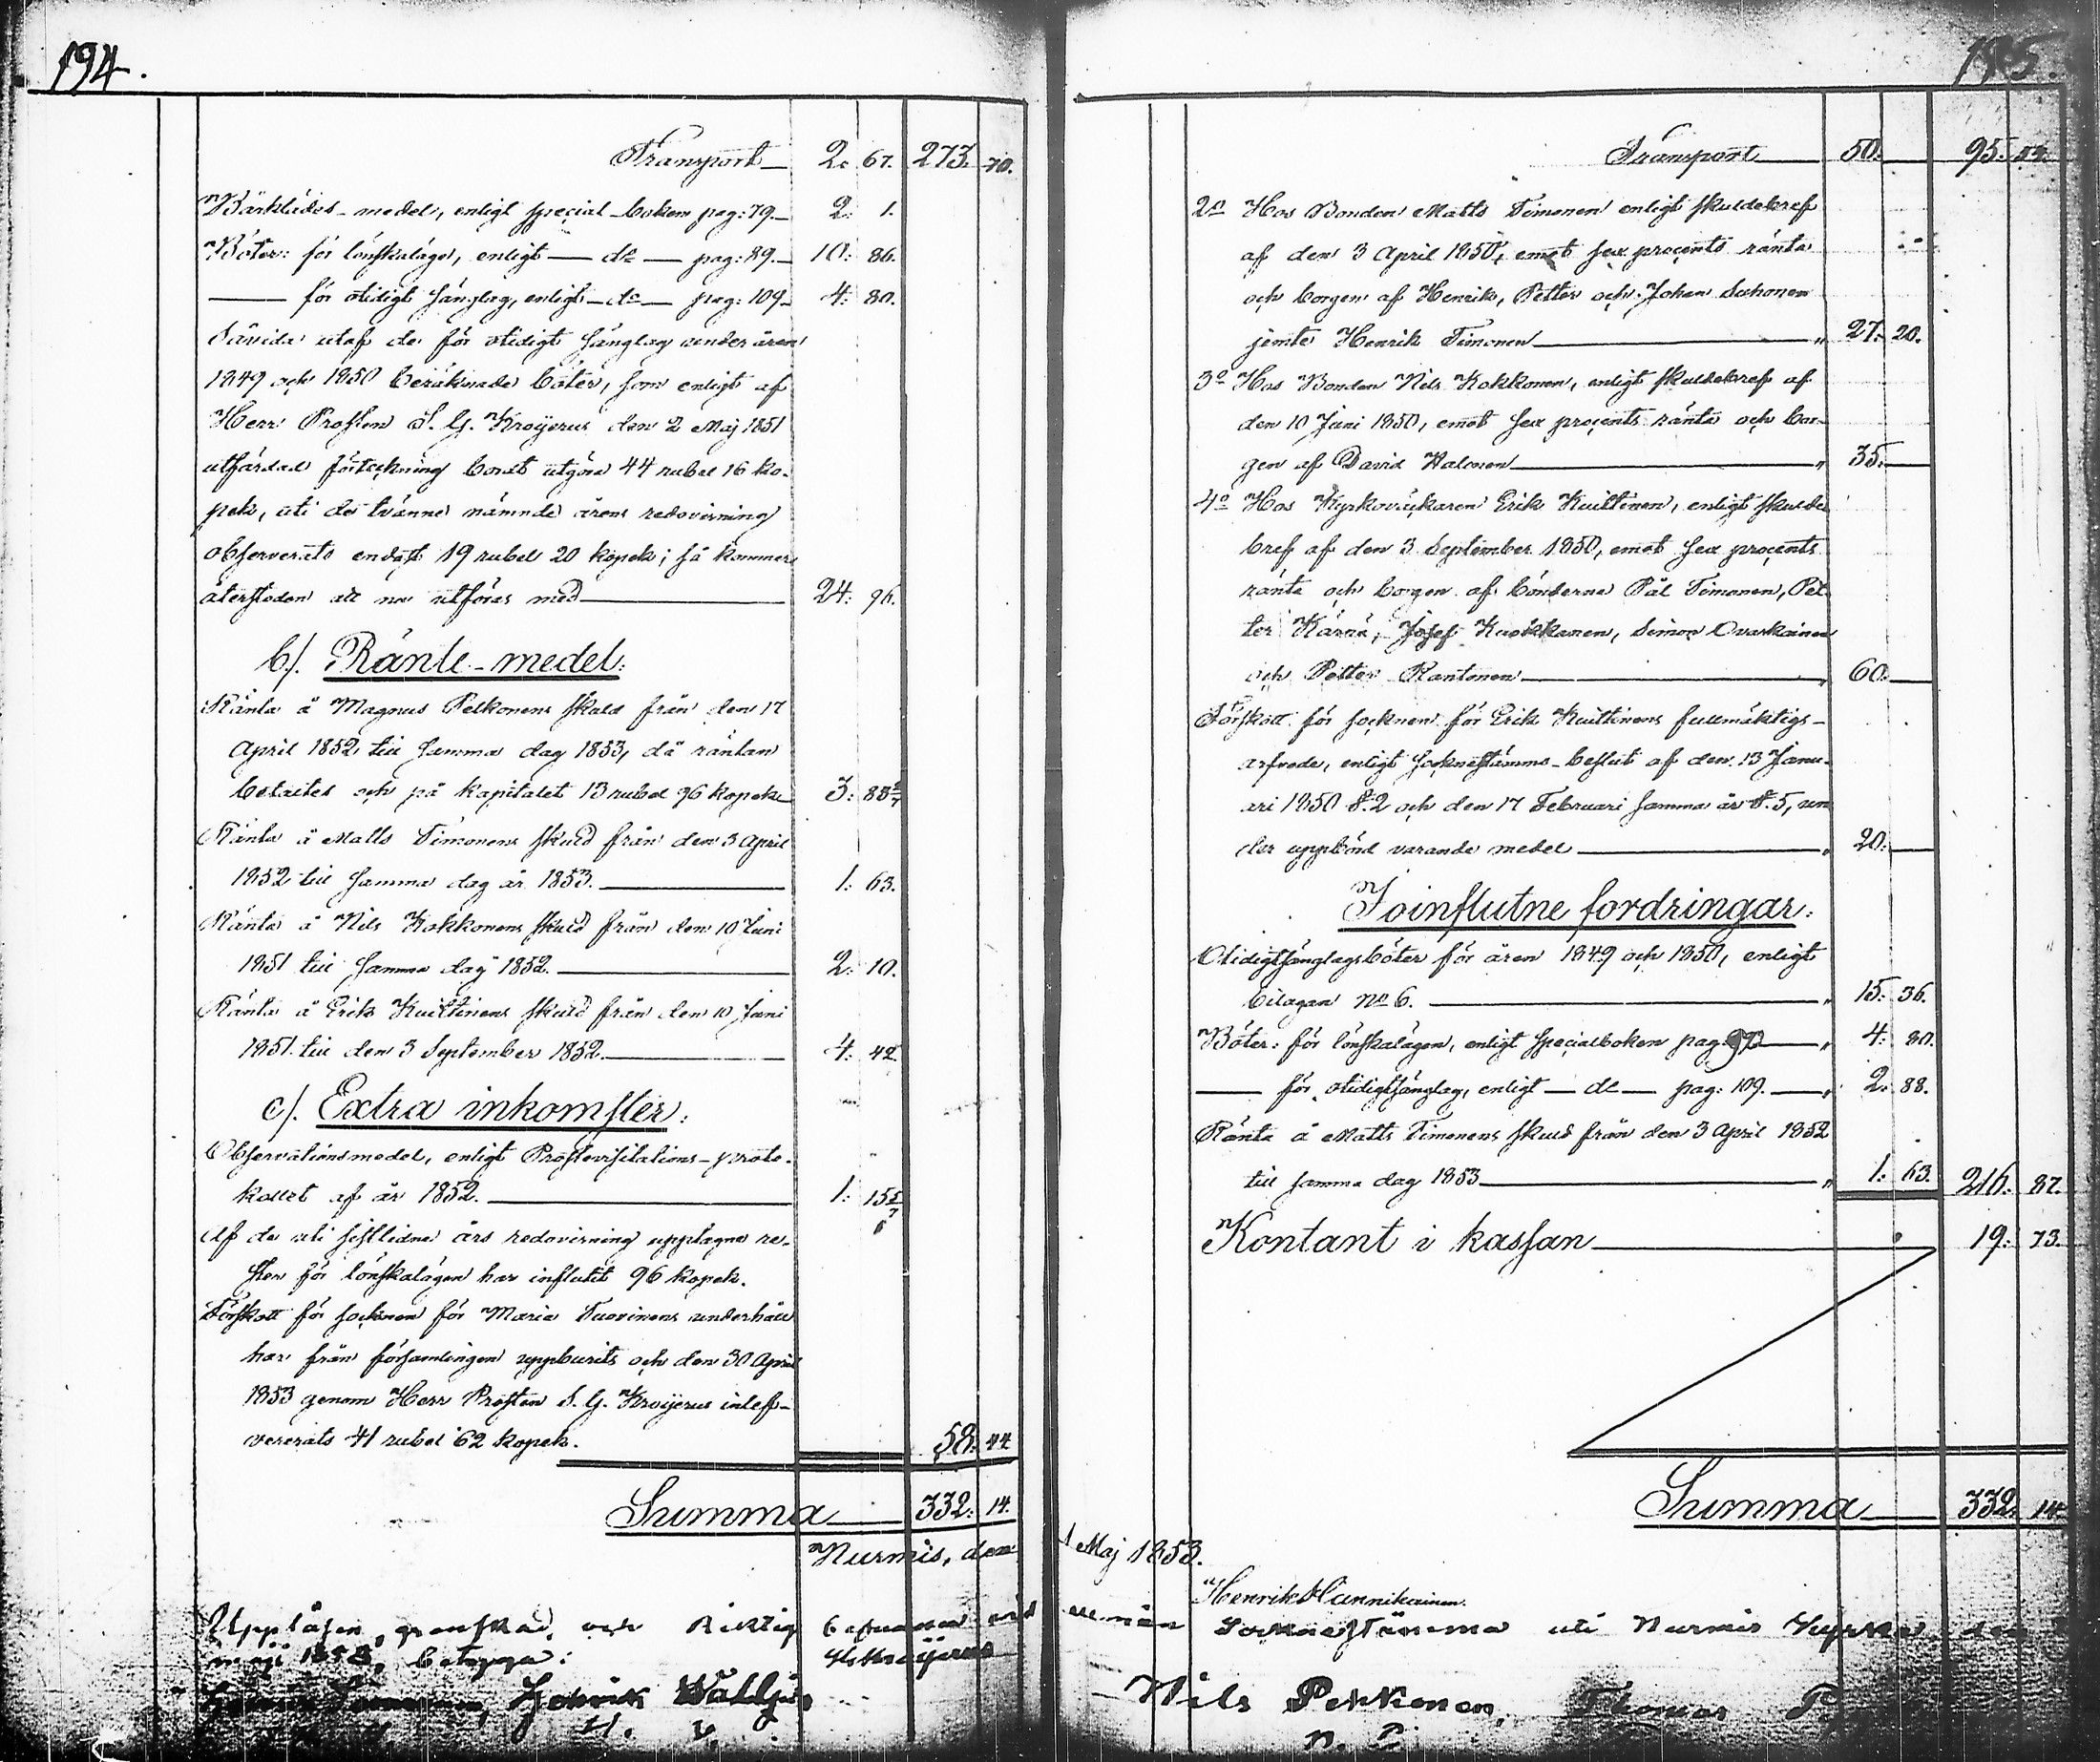 194.
Transport 2. 67. 273. 70.
Bårklädes-medel, enligt special-boken pag: 79. 2. 1.
Böter: för lönskaläge, enligt do pag: 89. 10. 86.
för otidigt sänglag, enligt do pag: 109 4. 80.
Såvida utaf de för otidigt sänglag under åren
1849 och 1850 beräknade böter, som enligt af
Herr Prosten S. G. Kroijerus den 2 Maj 1851
utfärdad förteckning bordt utgöra 44 rubel 16 ko-
pek, uti de tvänne nämnde årens redovisning
observerats endast 19 rubel 20 kopek; så kommer
återstoden att nu utföras med 24: 96.
b/. Ränte-medel:
Ränta å Magnus Pelkonens skuld från den 17
April 1852 till samma dag 1853, då räntan
betaltes och på kapitalet 13 rubel 96 kopek 3:
Ränta å Matts Timonens skuld från den 3 April
1852 till samma dag år 1853. 1. 63.
Ränta å Nils Kokkonens skuld från den 10 Juni
1851 till samma dag 1852. 2. 10.
Ränta å Erik Kuittinens skuld från den 10 Juni
1851 till den 3 September 1852. 4. 42
c/. Extra inkomster:
Observationsmedel, enligt Prostevisitations-proto-
kollet af år 1852. 1. 15
Af de uti sistlidne års redovisning upptagne re-
ster för lönskalägen har influtit 96 kopek.
Förskott för socknen för Maria Tuovinens underhåll
har från församlingen uppburits och den 30 April
1853 genom Herr Prosten S. G. Kroijerus inlef-
vererats 41 rubel 62 kopek. 58. 44
Summa 332. 14.
Nurmis, den 1 Maj 1853.
195.
Transport 50. 95. 54.
2o Hos Bonden Matts Timonen enligt skuldebref
af den 3 April 1850, emot sex procents ränta
och borgen af Henrik, Petter och Johan Suhonen
jemte Henrik Timonen " 27: 20.
3o Hos Bonden Nils Kokkonen, enligt skuldebref af
den 10 Juni 1850, emot sex procents ränta och bor-
gen af David Halonen " 35.
4o Hos Kyrkoväktaren Erik Kuittinen, enligt skulde
bref af den 3 September 1850, emot sex procents
ränta och borgen af bönderne Pål Timonen, Pet-
ter Kärnä, Josef Kuokkanen, Simon Ovaskainen
och Petter Rantonen " 60.
Förskott för socknen för Erik Kuittinens fullmäktigs-
arfvode, enligt socknestämmo-beslut af den 13 Janu-
ari 1850 §. 2 och den 17 Februari samma år §. 5, un
der uppbörd varande medel " 20.
Oinflutne fordringar:
Otidigtsänglagsböter för åren 1849 och 1850, enligt
bilagan No 6. " 15. 36.
Böter: för lönskalägen, enligt specialboken pag: 92 " 4. 80.
för otidigtsänglag, enligt do pag: 109. " 2. 88.
Ränta å Matts Timonens skuld från den 3 April 1852
till samma dag 1853 " 1. 63. 216. 87.
Kontant i kassan 19. 73.
Summa 332. 14
Henrik Hannikainen.
Uppläsen, granskad och riktig befunnen vid allmän Sockne Stämma uti Nurmis Kyrka den
maji 1853, betyga:
Henrik Wäljus
Nils Pekkonen, Thomas
N. P.